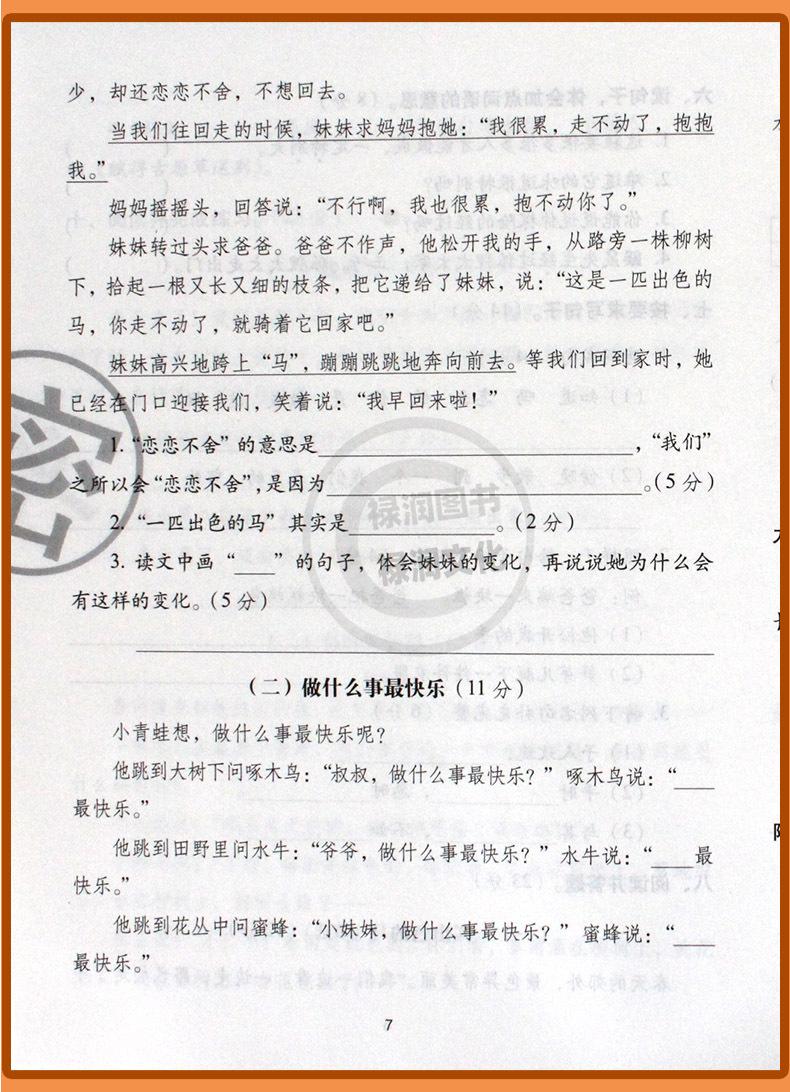 少，却还恋恋不舍，不想回去。
当我们往回走的时候，妹妹求妈妈抱她：“我很累，走不动了，抱抱
我。”
妈妈摇摇头，回答说：“不行啊，我也很累，抱不动你了。”
妹妹转过头求爸爸。爸爸不作声，他松开我的手，从路旁一株柳树
下，拾起一根又长又细的枝条，把它递给了妹妹，说：“这是一匹出色的
马，你走不动了，就骑着它回家吧。”
妹妹高兴地跨上“马”，蹦蹦跳跳地奔向前去。等我们回到家时，她
已经在门口迎接我们，笑着说：“我早回来啦！”
1. “恋恋不舍”的意思是________，“我们”
之所以会“恋恋不舍”，是因为________。（5 分）
2. “一匹出色的马”其实是________。（2 分）
3. 读文中画“____”的句子，体会妹妹的变化，再说说她为什么会
有这样的变化。（5 分）
（二）做什么事最快乐（11 分）
小青蛙想，做什么事最快乐呢？
他跳到大树下问啄木鸟：“叔叔，做什么事最快乐？”啄木鸟说：“____
最快乐。”
他跳到田野里问水牛：“爷爷，做什么事最快乐？”水牛说：“____最
快乐。”
他跳到花丛中问蜜蜂：“小妹妹，做什么事最快乐？”蜜蜂说：“____
最快乐。”
7
禄润图书
禄润文化
密